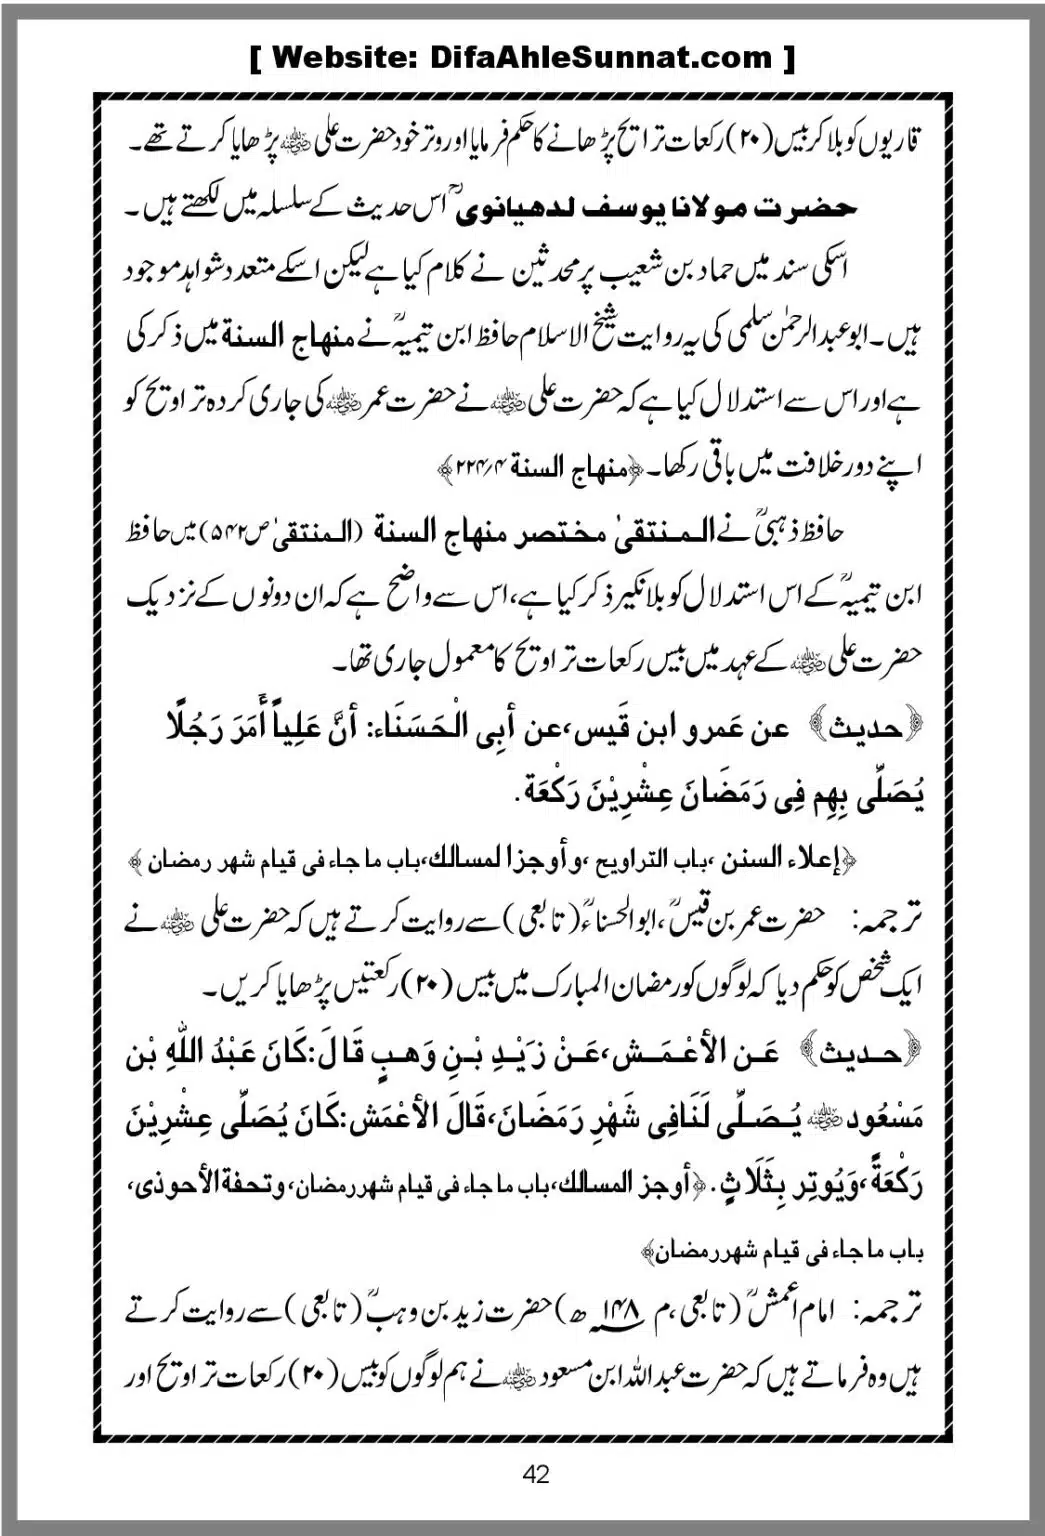 [ Website: DifaAhleSunnat.com ]
قاریوں کو بلا کر بیس (۲۰) رکعات تراویح پڑھانے کا حکم فرمایا اور وتر خود حضرت علی رضی اللہ عنہ پڑھایا کرتے تھے۔
حضرت مولانا یوسف لدھیانویؒ اس حدیث کے سلسلہ میں لکھتے ہیں۔
اسکی سند میں حماد بن شعیب پر محدثین نے کلام کیا ہے لیکن اسکے متعدد شواہد موجود
ہیں۔ ابو عبدالرحمٰن سلمی کی یہ روایت شیخ الاسلام حافظ ابن تیمیہؒ نے منهاج السنة میں ذکر کی
ہے اور اس سے استدلال کیا ہے کہ حضرت علی رضی اللہ عنہ نے حضرت عمر رضی اللہ عنہ کی جاری کردہ تراویح کو
اپنے دور خلافت میں باقی رکھا۔ ﴿منهاج السنة ۲۲۴/۴﴾
حافظ ذہبیؒ نے المنتقیٰ مختصر منهاج السنة (المنتقیٰ ص۵۴۲) میں حافظ
ابن تیمیہؒ کے اس استدلال کو بلا نکیر ذکر کیا ہے، اس سے واضح ہے کہ ان دونوں کے نزدیک
حضرت علی رضی اللہ عنہ کے عہد میں بیس رکعات تراویح کا معمول جاری تھا۔
﴿حدیث﴾ عن عَمرو ابن قَیس،عن أبِی الْحَسَنَاء: أنَّ عَلِیاً أَمَرَ رَجُلًا
یُصَلِّی بِهِم فِی رَمَضَانَ عِشْرِیْنَ رَکْعَة.
﴿إعلاء السنن ،باب التراویح ،وأوجزا لمسالك،باب ما جاء فی قیام شهر رمضان ﴾
ترجمہ: حضرت عمر بن قیسؒ، ابوالحسناءؒ (تابعی) سے روایت کرتے ہیں کہ حضرت علی رضی اللہ عنہ نے
ایک شخص کو حکم دیا کہ لوگوں کو رمضان المبارک میں بیس (۲۰) رکعتیں پڑھایا کریں۔
﴿حدیث﴾ عَن الأعْمَش،عَنْ زَیْدِ بْنِ وَهبٍ قَالَ:کَانَ عَبْدُ اللّٰهِ بْن
مَسْعُود رضی اللہ عنہ یُصَلِّی لَنَافِی شَهْرِ رَمَضَانَ،قَالَ الأعْمَش:کَانَ یُصَلِّی عِشْرِیْنَ
رَکْعَةً،وَیُوتِر بِثَلَاثٍ.﴿أوجز المسالك،باب ما جاء فی قیام شهررمضان،وتحفةالأحوذی،
باب ما جاء فی قیام شهررمضان﴾
ترجمہ: امام اعمشؒ (تابعی،م ۱۴۸ھ) حضرت زید بن وہبؒ (تابعی) سے روایت کرتے
ہیں وہ فرماتے ہیں کہ حضرت عبداللہ ابن مسعود رضی اللہ عنہ نے ہم لوگوں کو بیس (۲۰) رکعات تراویح اور
42